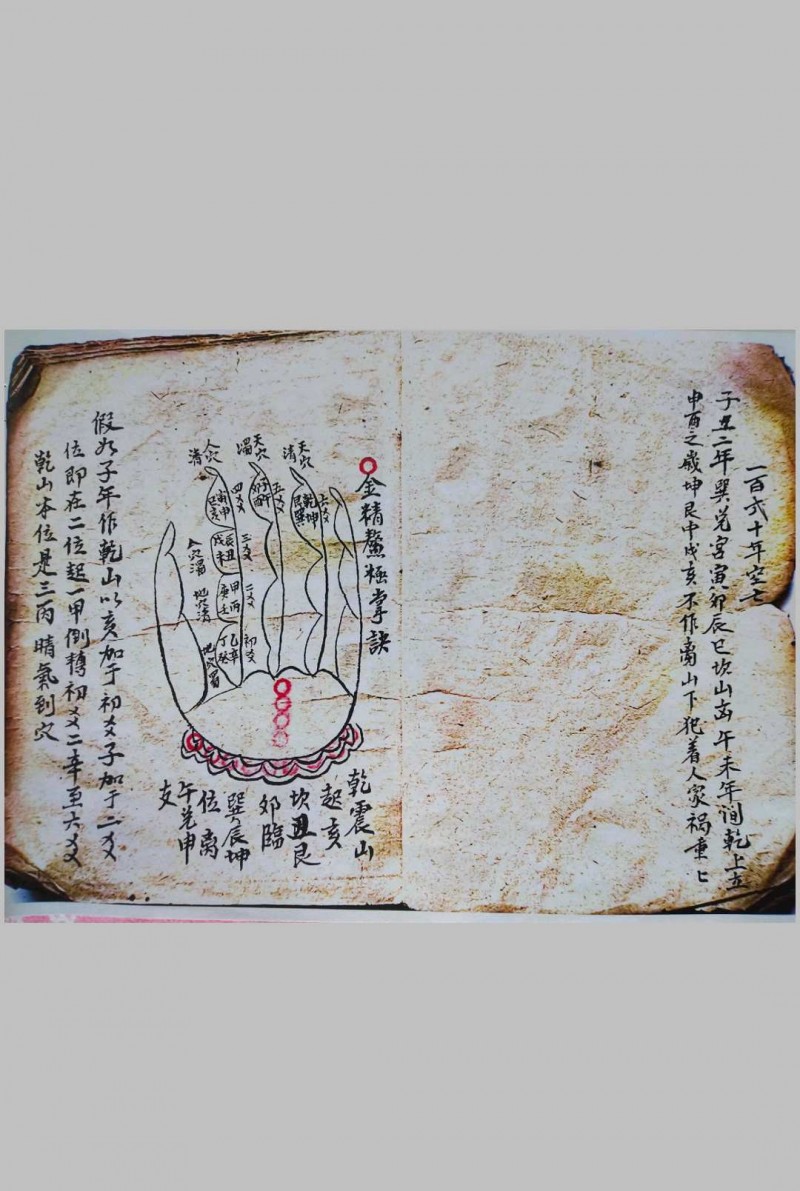 一百弍十年空亡
子丑二年巽兑宫寅卯辰巳坎山虚午未年间乾上立
申酉之歳坤艮中戌亥不作离山下犯着人家祸重亡
金精鰲極掌訣
天穴清
天穴濁
人穴清
人穴濁
地穴清
地穴
六爻
五爻
四爻
三爻
二爻
初爻
乾坤艮巽
子午卯酉
寅申巳亥
辰丑戌未
甲丙庚壬
乙辛丁癸
乾震山
起亥
坎丑艮
卯臨
巽辰坤
位离
午兑申
支
假如子年作乾山以亥加于初爻子加于二爻
位即在二位起一甲倒轉初爻二辛至六爻
乾山本位是三丙晴氣到穴